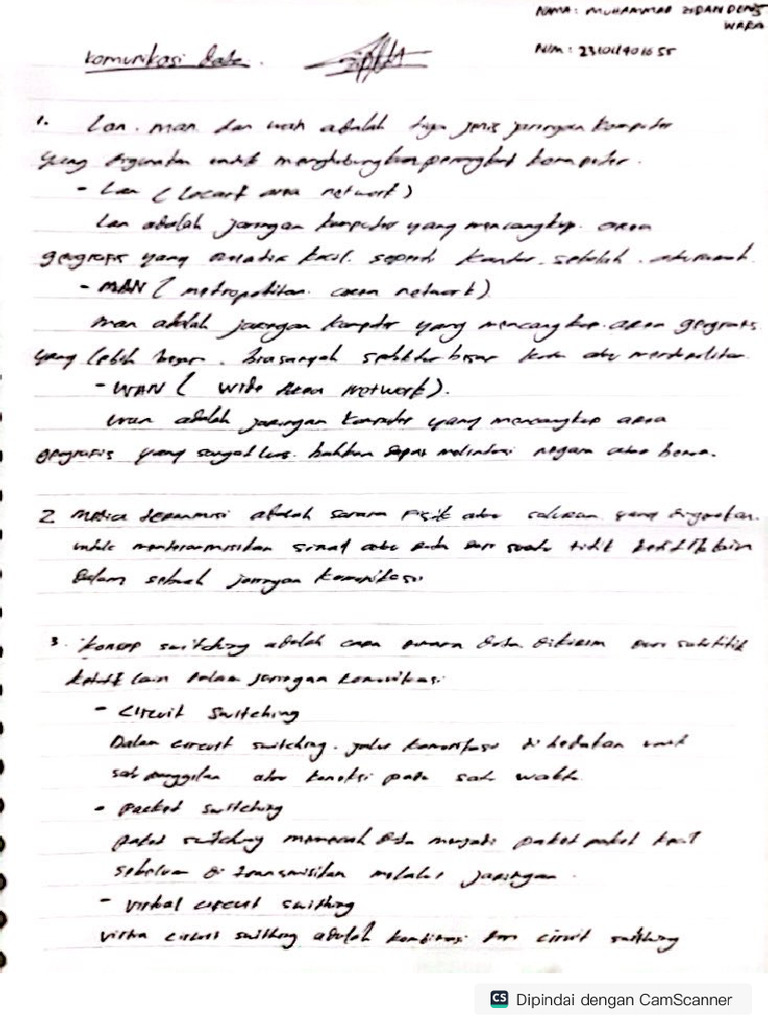 NAMA : MUHAMMAD ZIDAN DENS
WARA
Komunikasi Data .
NIM :
1. Lan . man . dan wan adalah tiga jenis jaringan komputer
yang digunakan untuk menghubungkan perangkat komputer .
- Lan ( Locarl area network )
Lan adalah jaringan komputer yang mencangkup . area
geografis yang relatif kecil . seperti kantor . sekolah .
- MAN ( metropolitan . area network )
man adalah jaringan komputer yang mencangkup . area geografis
yang lebih besar . biasanyah kota atau
- WAN ( Wide Area Network ) .
wan adalah jaringan komputer yang mencangkup area
geografis yang sangat luas . bahkan dapat melintasi negara atau benua .
2 Media adalah sarana fisik atau saluran yang digunakan .
untuk mentransmisikan sinyal atau data dari suatu titik lain
dalam sebuah jaringan komunikasi
3 . Konsep switching adalah cara data dikirim dari titik
lain dalam jaringan komunikasi
- Circuit Switching
Dalam circuit switching . jalur komunikasi di untuk
atau koneksi pada satu waktu
- Packed switching
paket switching data menjadi paket paket kecil
sebelum di transmisikan melalui jaringan .
- virtual circuit swithing
circuit swithing adalah kombinasi dari circuit swithing
CS Dipindai dengan CamScanner